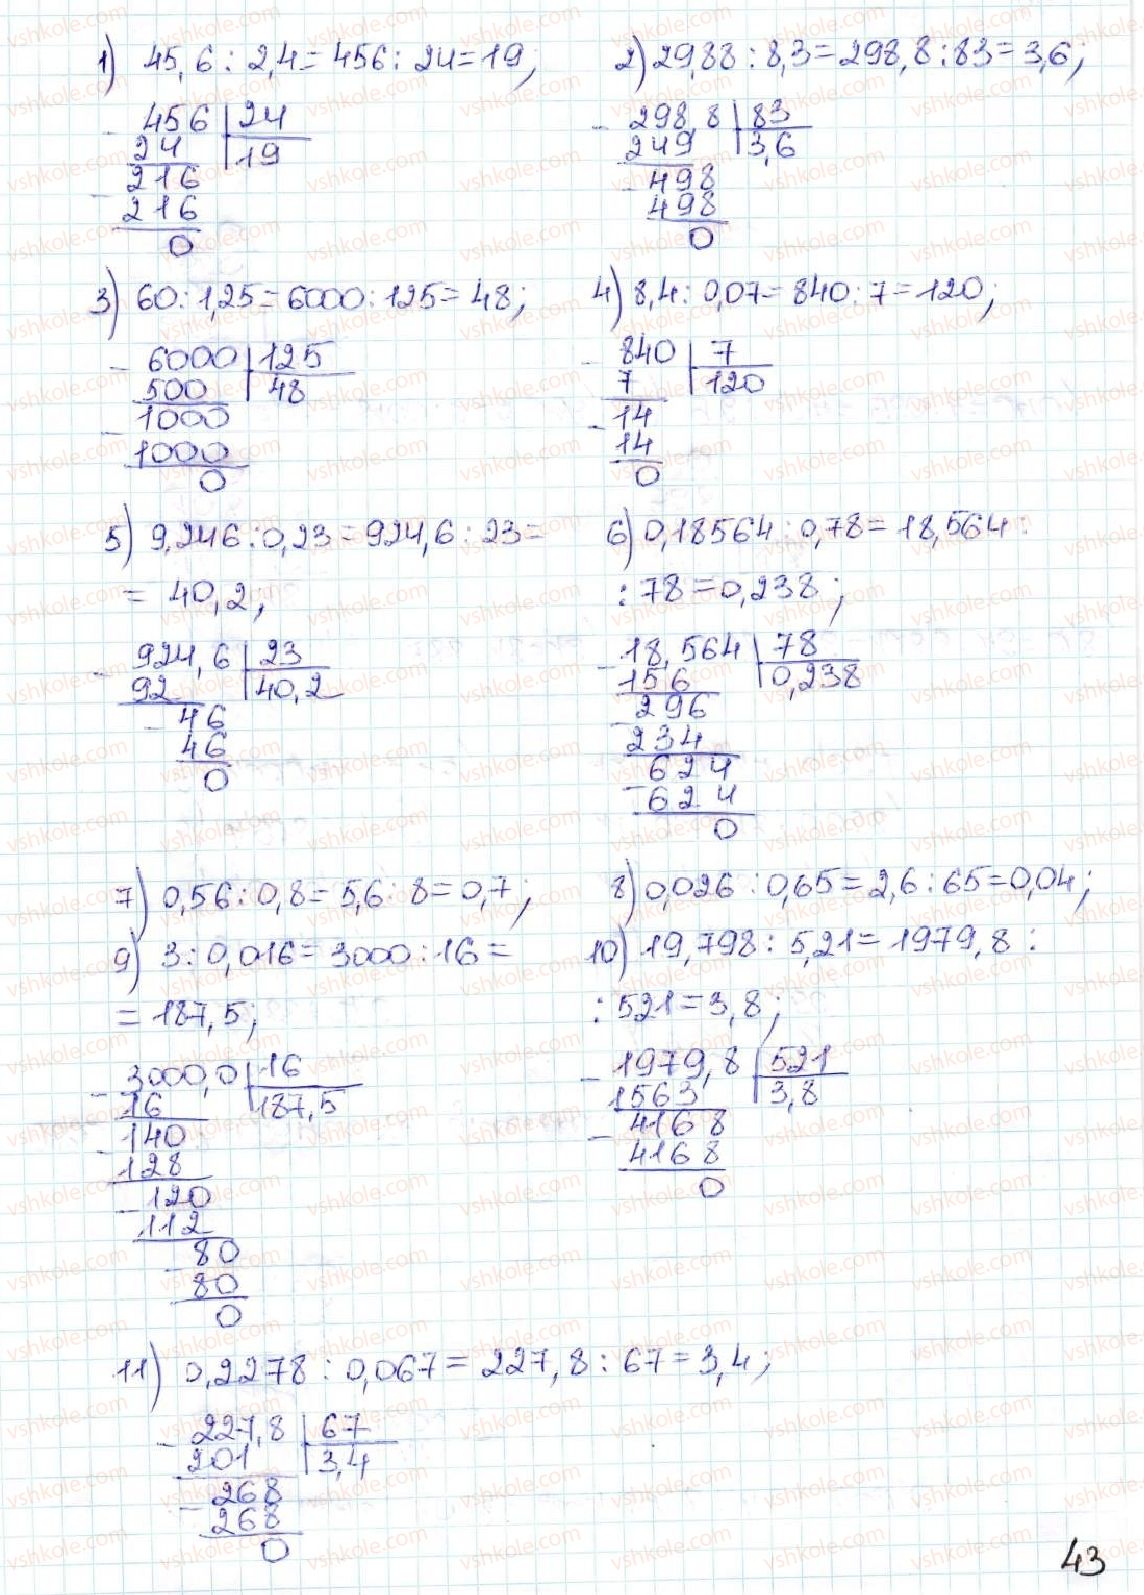 1) 45,6 : 2,4 = 456 : 24 = 19;
456 | 24
24 | 19
216
216
0
2) 29,88 : 8,3 = 298,8 : 83 = 3,6;
298,8 | 83
249 | 3,6
498
498
0
3) 60 : 1,25 = 6000 : 125 = 48;
6000 | 125
500 | 48
1000
1000
0
4) 8,4 : 0,07 = 840 : 7 = 120;
840 | 7
7 | 120
14
14
0
5) 9,246 : 0,23 = 924,6 : 23 =
= 40,2;
924,6 | 23
92 | 40,2
46
46
0
6) 0,18564 : 0,78 = 18,564 :
: 78 = 0,238;
18,564 | 78
156 | 0,238
296
234
624
624
0
7) 0,56 : 0,8 = 5,6 : 8 = 0,7;
8) 0,026 : 0,65 = 2,6 : 65 = 0,04;
9) 3 : 0,016 = 3000 : 16 =
= 187,5;
3000,0 | 16
16 | 187,5
140
128
120
112
80
80
0
10) 19,798 : 5,21 = 1979,8 :
: 521 = 3,8;
1979,8 | 521
1563 | 3,8
4168
4168
0
11) 0,2278 : 0,067 = 227,8 : 67 = 3,4;
227,8 | 67
201 | 3,4
268
268
0
43